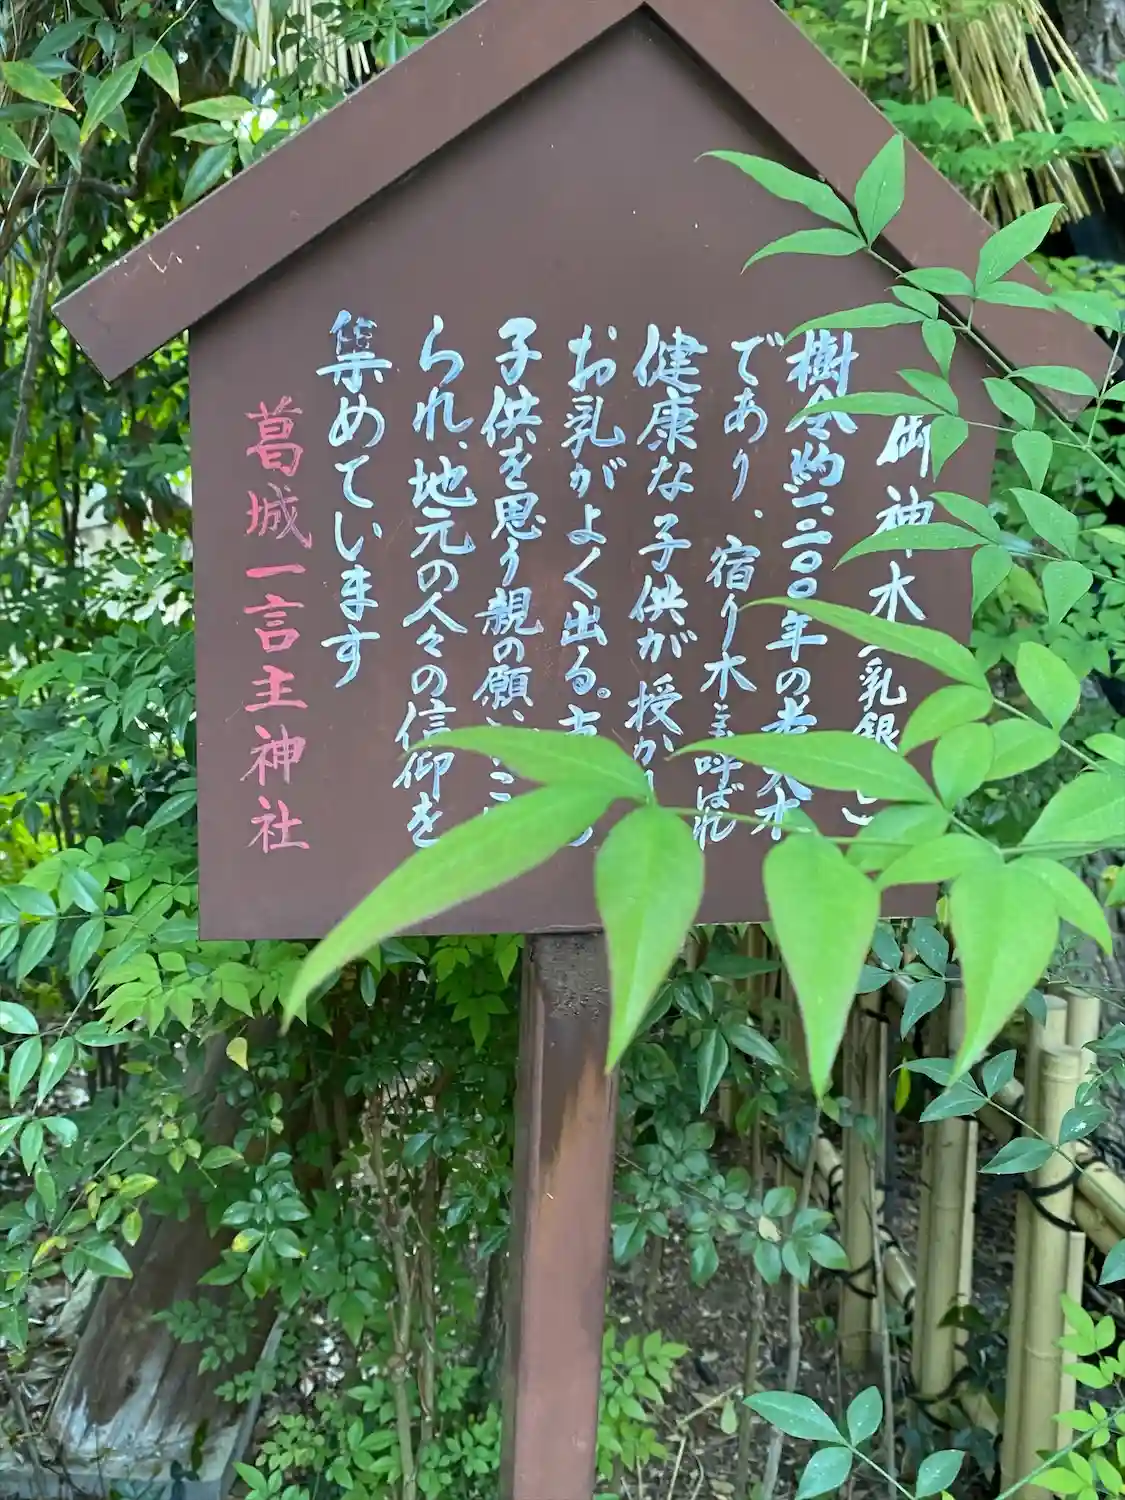 御神木 乳銀
樹令約一二〇〇年の老大木
であり、宿り木と呼ばれ
健康な子供が授か
お乳がよく出る。
子供を思う親の願い
られ、地元の人々の信仰を
集めています
葛城一言主神社